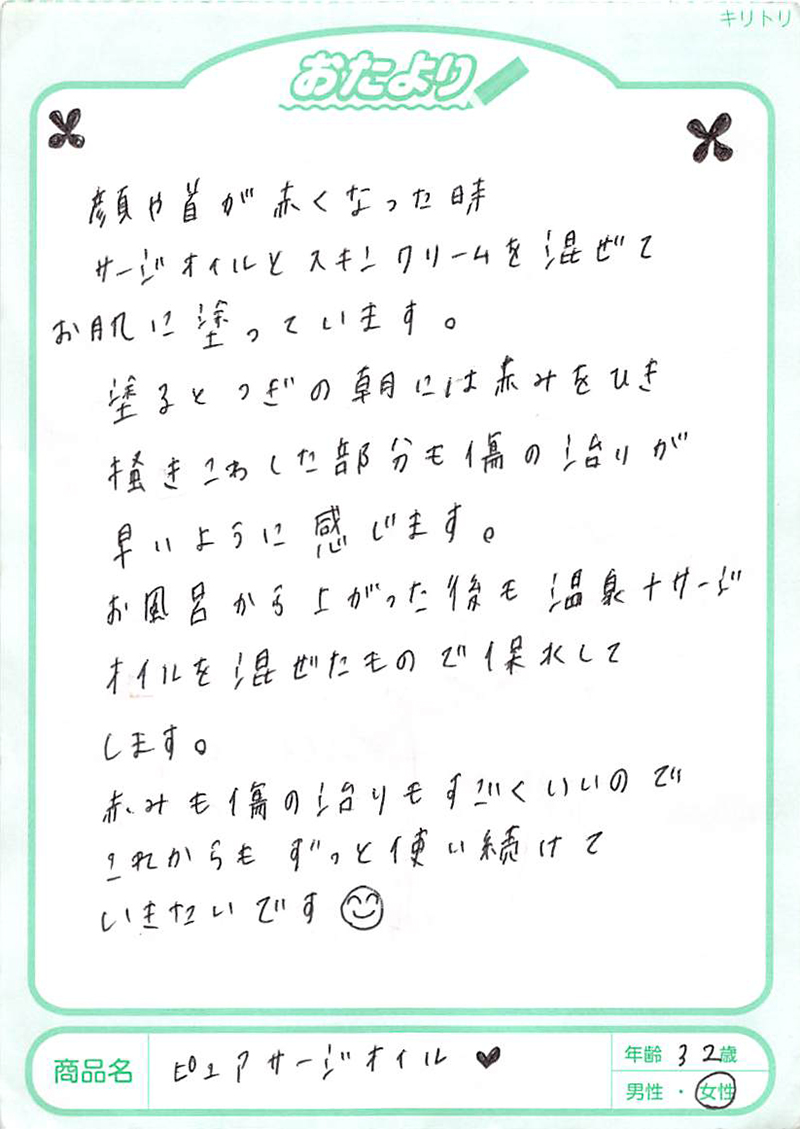 キリトリ
おたより
顔や首が赤くなった時
サージオイルとスキンクリームを混ぜて
お肌に塗っています。
塗るとつぎの朝には赤みをひき
掻きこわした部分も傷の治りが
早いように感じます。
お風呂から上がった後も温泉+サージ
オイルを混ぜたもので保水して
します。
赤みも傷の治りもすごくいいので
これからもずっと使い続けて
いきたいです
商品名 ピュアサージオイル♥
年齢 32歳
男性・女性